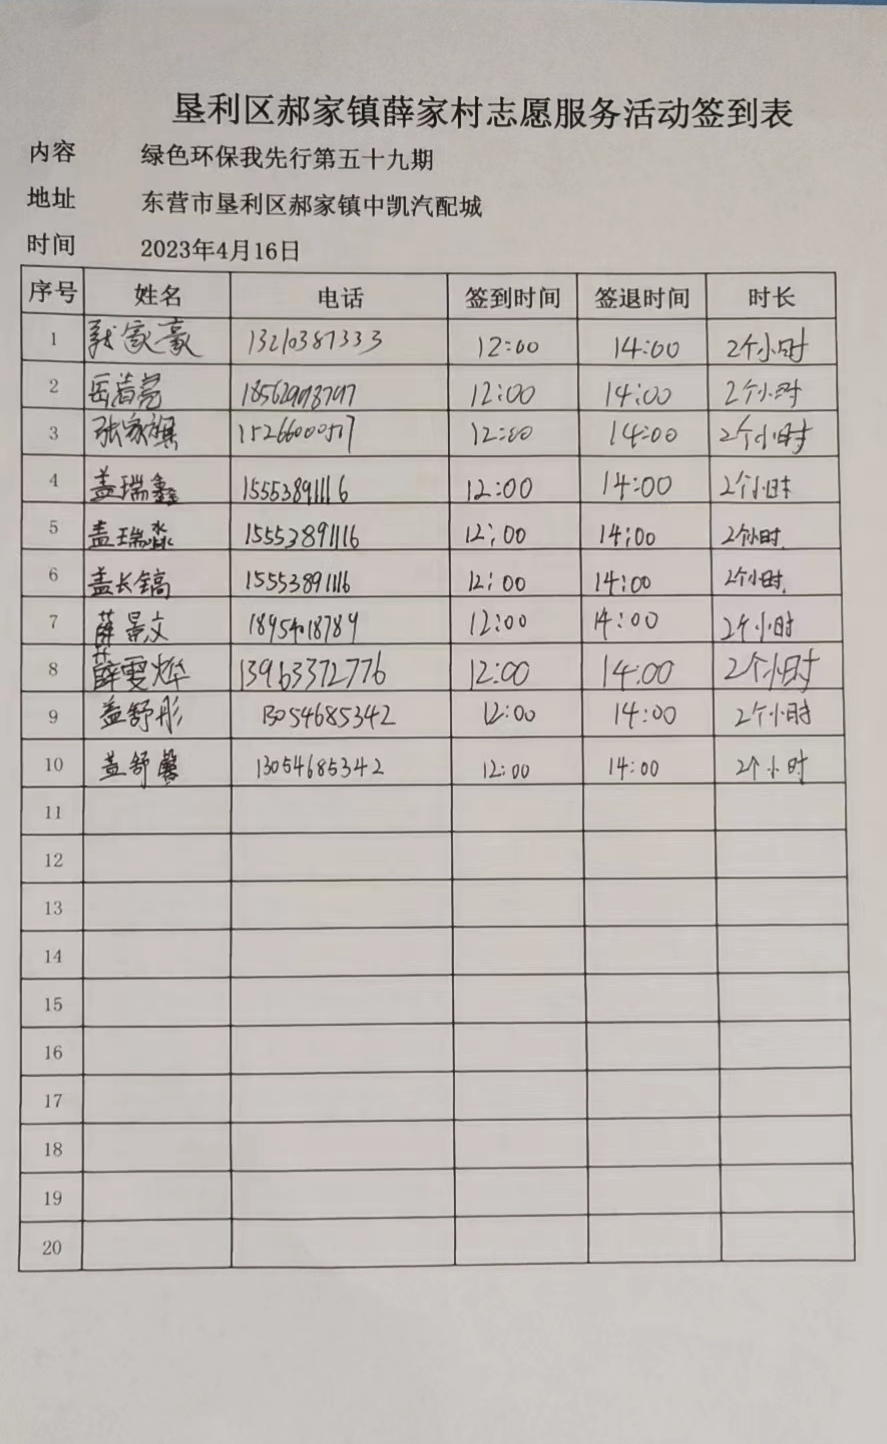 垦利区郝家镇薛家村志愿服务活动签到表
内容 绿色环保我先行第五十九期
地址 东营市垦利区郝家镇中凯汽配城
时间 2023年4月16日
序号 姓名 电话 签到时间 签退时间 时长
1 家豪 13210387333 12:00 14:00 2个小时
2 12:00 14:00 2个小时
3 张家旗 12:00 14:00 2个小时
4 盖瑞鑫 15553891116 12:00 14:00 2个小时
5 盖瑞淼 15553891116 12:00 14:00 2个小时.
6 盖长镐 15553891116 12:00 14:00 2个小时.
7 薛景文 18954018789 12:00 14:00 2个小时
8 薛雯烨 13963372776 12:00 14:00 2个小时
9 盖舒彤 13054685342 12:00 14:00 2个小时
10 盖舒馨 13054685342 12:00 14:00 2个小时
11
12
13
14
15
16
17
18
19
20